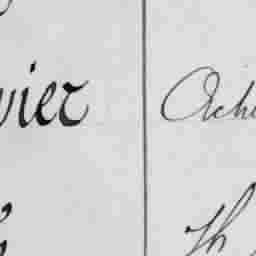 vier Achi
Th